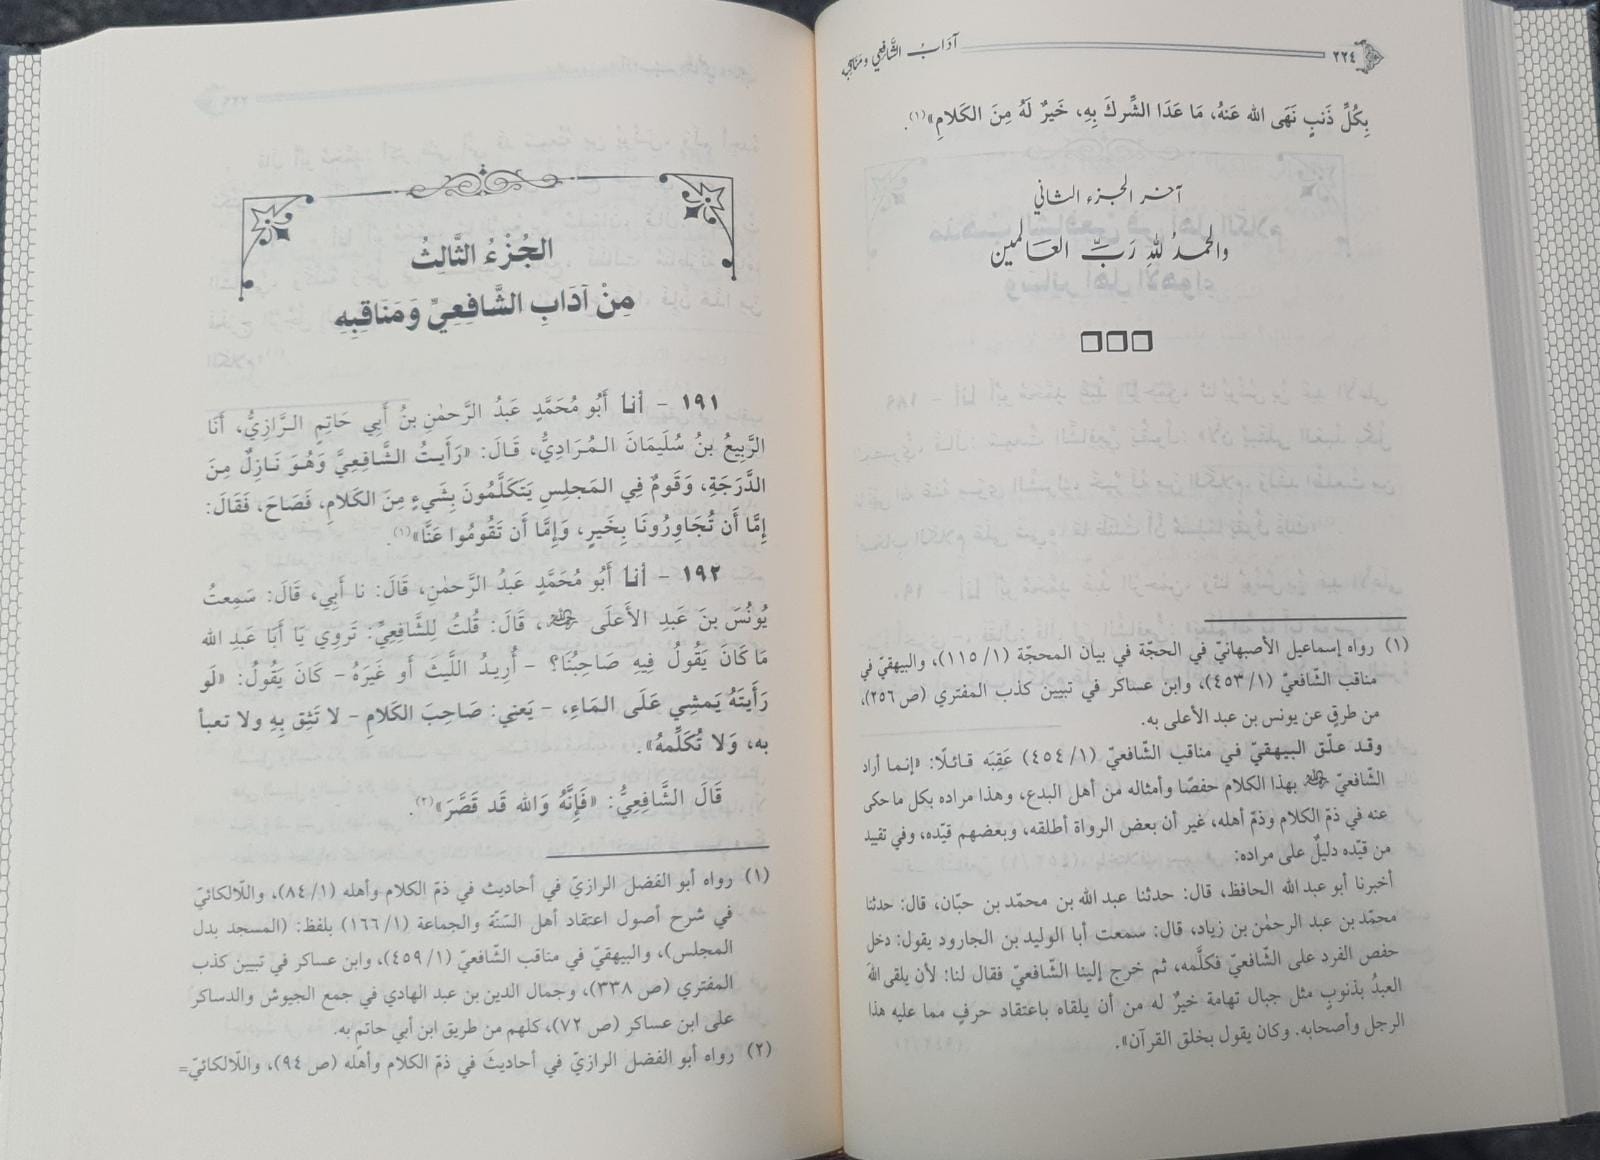 ٢٢٤
آدَابُ الشَّافِعِي وَمَنَاقِبه
بِكُلِّ ذَنبٍ نَهَى الله عَنهُ، مَا عَدَا الشِّركَ بِهِ، خَيرٌ لَهُ مِنَ الكَلامِ»(١).
آخر الجزء الثاني
والحمدُ للهِ رَبِّ العَالمين
(١) رواه إسماعيل الأصبهانيّ في الحجّة في بيان المحجّة (١/ ١١٥)، والبيهقيّ في
مناقب الشّافعيّ (١/ ٤٥٣)، وابن عساكر في تبيين كذب المفتري (ص ٢٥٦)،
من طرقٍ عن يونس بن عبد الأعلى به.
وقد علّق البيهقيّ في مناقب الشّافعيّ (١/ ٤٥٤) عَقِبَه قائلًا: «إنما أراد
الشّافعيّ رحمه الله بهذا الكلام حفصًا وأمثاله من أهل البدع، وهذا مراده بكل ما حكى
عنه في ذمّ الكلام وذمّ أهله، غير أن بعض الرواة أطلقه، وبعضهم قيّده، وفي تقييد
من قيّده دليلٌ على مراده:
أخبرنا أبو عبد الله الحافظ، قال: حدثنا عبد الله بن محمّد بن حبّان، قال: حدثنا
محمّد بن عبد الرحمٰن بن زياد، قال: سمعت أبا الوليد بن الجارود يقول: دخل
حفص الفرد على الشّافعيّ فكلَّمه، ثم خرج إلينا الشّافعيّ فقال لنا: لأن يلقى اللهَ
العبدُ بذنوبٍ مثل جبال تهامة خيرٌ له من أن يلقاه باعتقاد حرفٍ مما عليه هذا
الرجل وأصحابه. وكان يقول بخلق القرآن».
الجُزْءُ الثَّالثُ
مِنْ آدَابِ الشَّافِعِيِّ وَمَنَاقِبِهِ
١٩١ - أنا أَبُو مُحَمَّدٍ عَبدُ الرَّحمٰنِ بنُ أَبِي حَاتِمٍ الرَّازِيُّ، أَنَا
الرَّبِيعُ بنُ سُلَيمَانَ المُرَادِيُّ، قَالَ: «رَأَيتُ الشَّافِعِيَّ وَهُوَ نَازِلٌ مِنَ
الدَّرَجَةِ، وَقَومٌ فِي المَجلِسِ يَتَكَلَّمُونَ بِشَيءٍ مِنَ الكَلامِ، فَصَاحَ، فَقَالَ:
إِمَّا أَن تُجَاوِرُونَا بِخَيرٍ، وَإِمَّا أَن تَقُومُوا عَنَّا»(١).
١٩٢ - أنا أَبُو مُحَمَّدٍ عَبدُ الرَّحمٰنِ، قَالَ: نا أَبِي، قَالَ: سَمِعتُ
يُونُسَ بنَ عَبدِ الأَعلَى رحمه الله، قَالَ: قُلتُ لِلشَّافِعِيِّ: تَروِي يَا أَبَا عَبدِ الله
مَا كَانَ يَقُولُ فِيهِ صَاحِبُنَا؟ - أُرِيدُ اللَّيثَ أَو غَيرَهُ - كَانَ يَقُولُ: «لَو
رَأَيتَهُ يَمشِي عَلَى المَاءِ، - يَعنِي: صَاحِبَ الكَلامِ - لا تَثِق بِهِ ولا تعبأ
به، وَلا تُكَلِّمهُ».
قَالَ الشَّافِعِيُّ: «فَإِنَّهُ وَالله قَد قَصَّرَ»(٢).
(١) رواه أبو الفضل الرازيّ في أحاديث في ذمّ الكلام وأهله (١/ ٨٤)، واللّالكائيّ
في شرح أصول اعتقاد أهل السّنّة والجماعة (١/ ١٦٦) بلفظ: (المسجد بدل
المجلس)، والبيهقيّ في مناقب الشّافعيّ (١/ ٤٥٩)، وابن عساكر في تبيين كذب
المفتري (ص ٣٣٨)، وجمال الدين بن عبد الهادي في جمع الجيوش والدساكر
على ابن عساكر (ص ٧٢)، كلهم من طريق ابن أبي حاتمٍ به.
(٢) رواه أبو الفضل الرازيّ في أحاديثَ في ذمّ الكلام وأهله (ص ٩٤)، واللّالكائيّ=